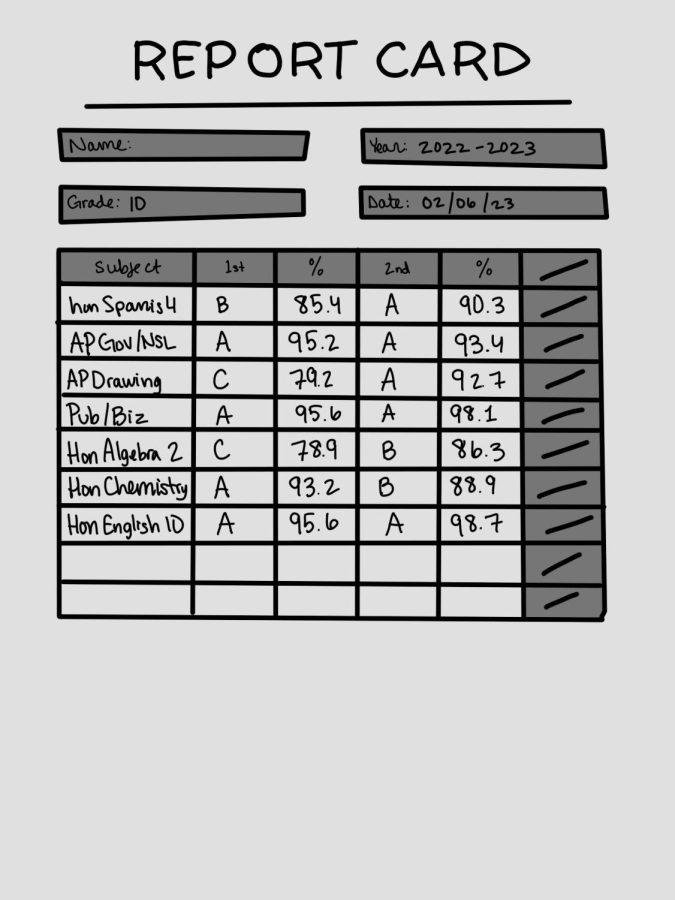 REPORT CARD
Name: Year: 2022-2023
Grade: 10 Date: 02/06/23
Subject 1st % 2nd %
hon Spanis 4 B 85.4 A 90.3
AP Gov/NSL A 95.2 A 93.4
AP Drawing C 79.2 A 927
Pub/Biz A 95.6 A 98.1
Hon Algebra 2 C 78.9 B 86.3
Hon Chemistry A 93.2 B 88.9
Hon English 10 A 95.6 A 98.7